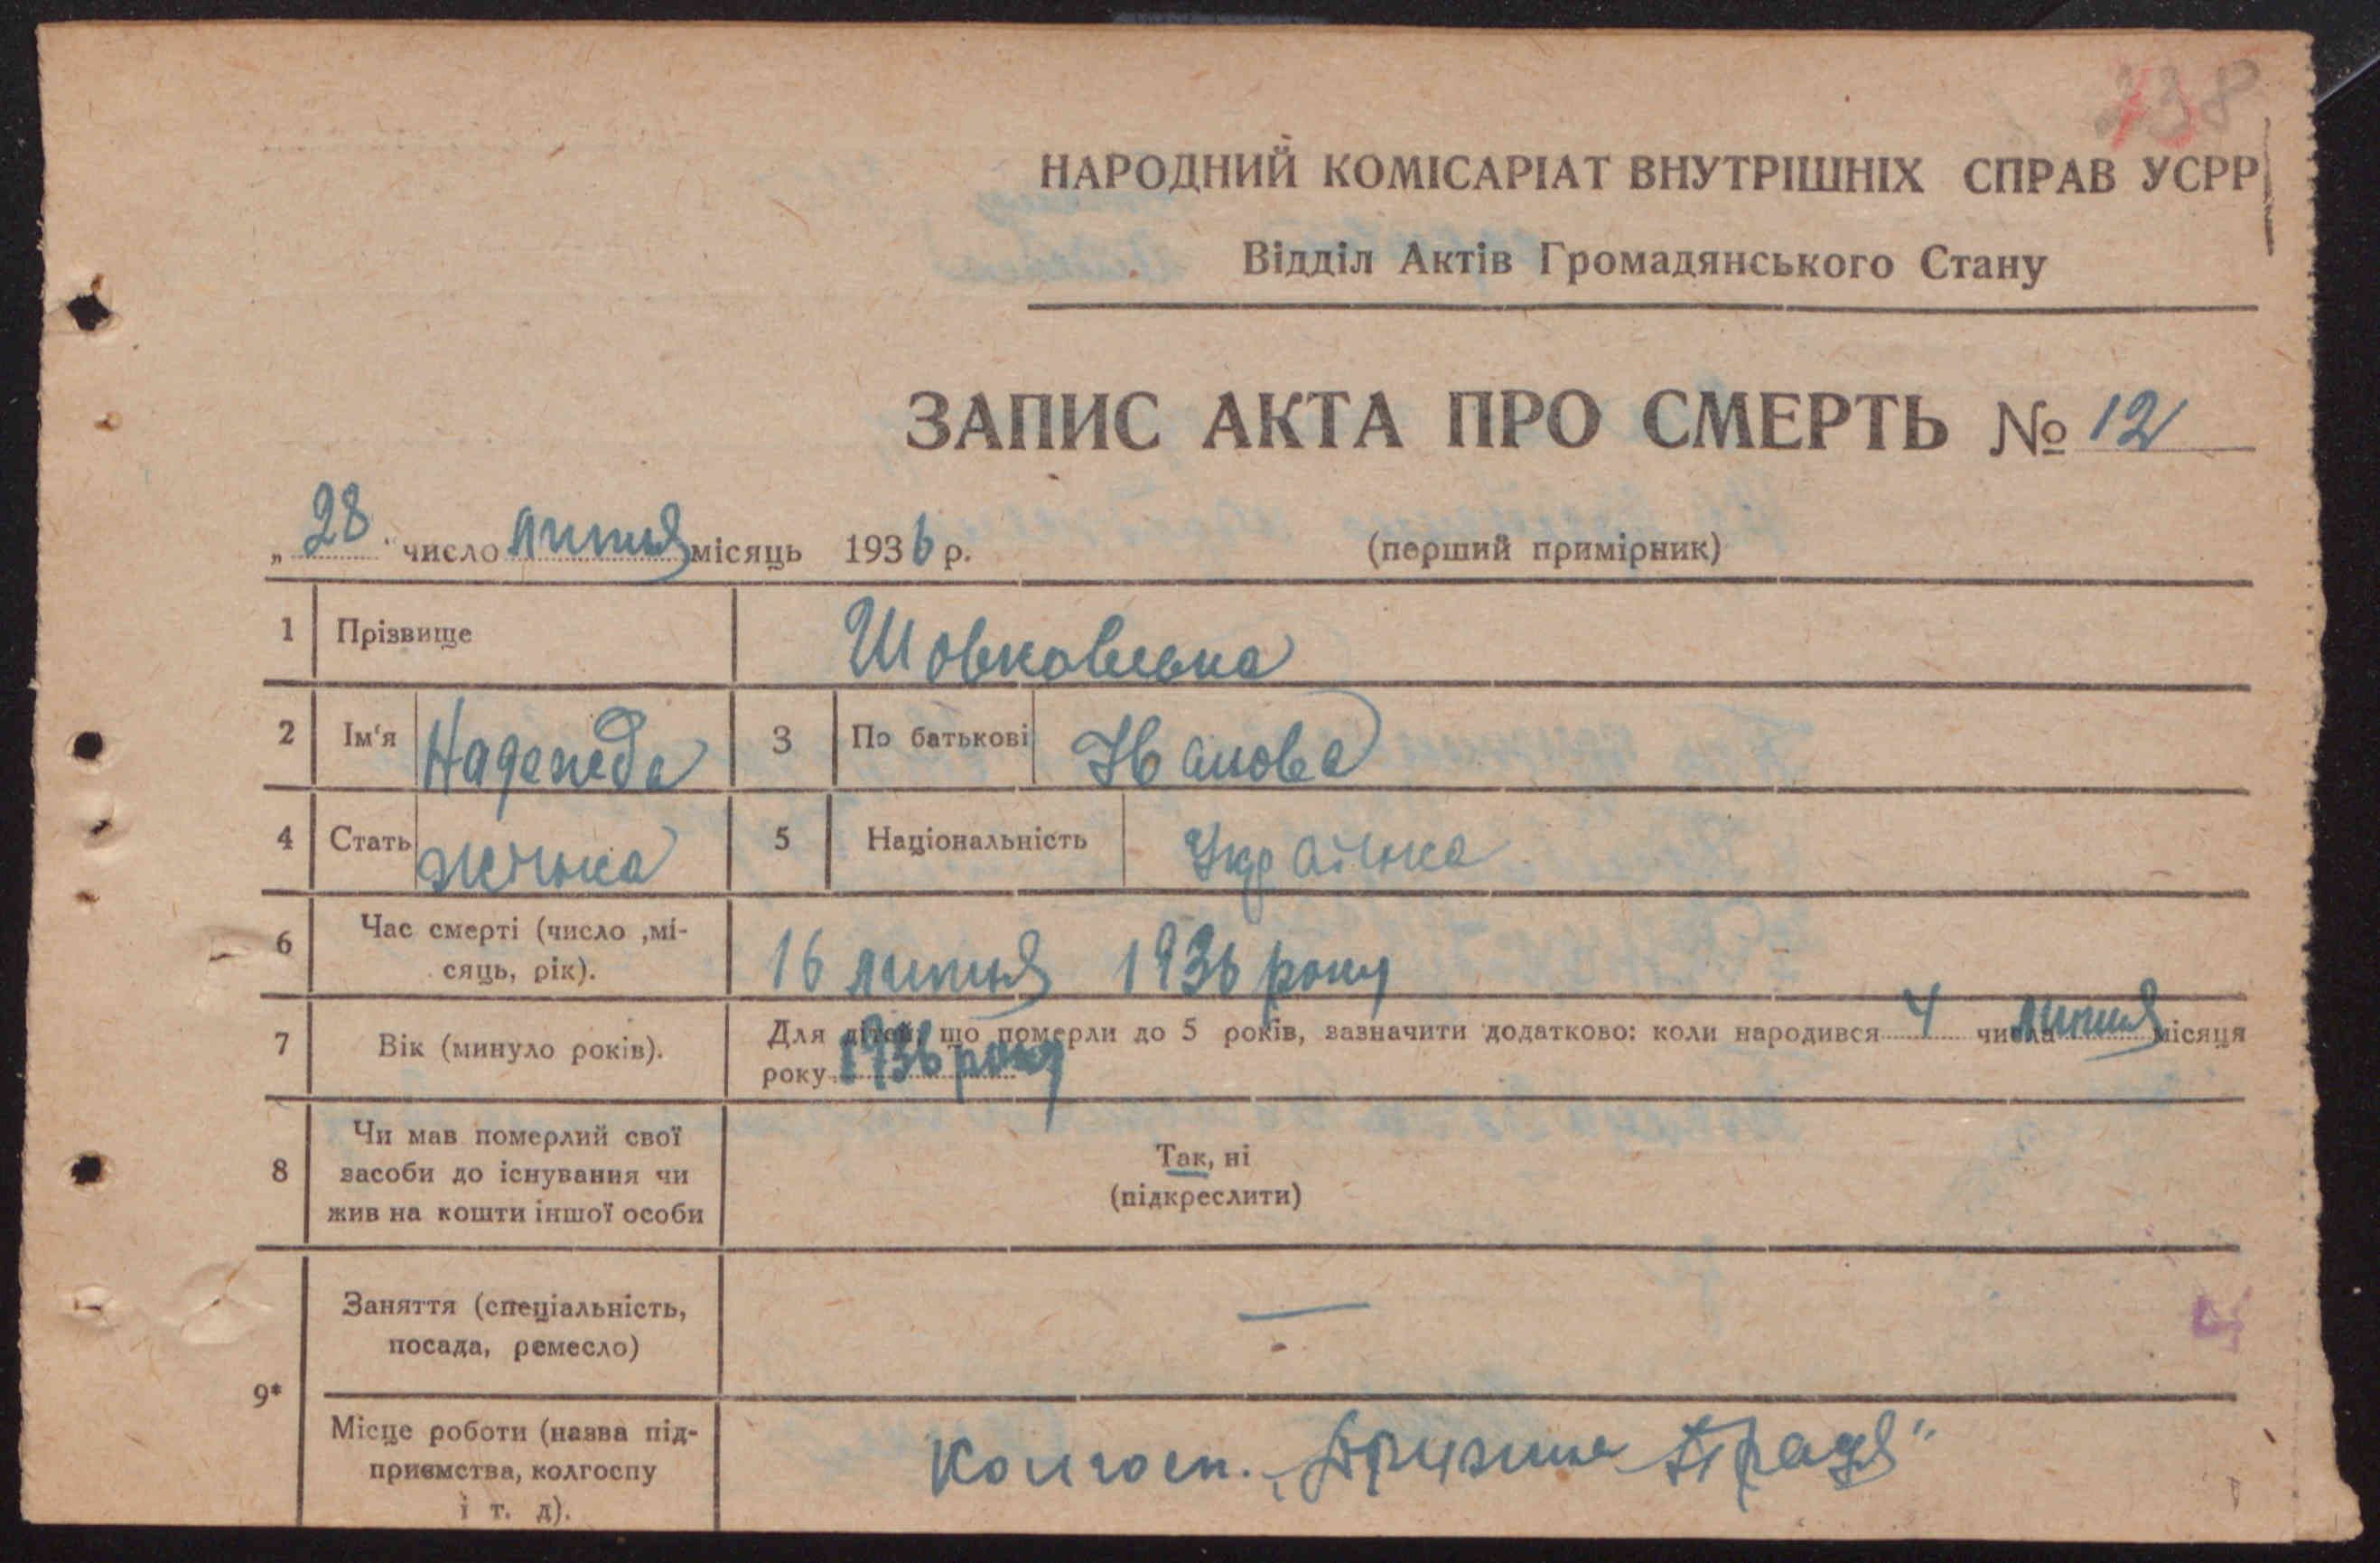 238
НАРОДНИЙ КОМІСАРІАТ ВНУТРІШНІХ СПРАВ УСРР
Відділ Актів Громадянського Стану
ЗАПИС АКТА ПРО СМЕРТЬ № 12
„28“ число липня місяць 1936 р. (перший примірник)
1 Прізвище Шовковська
2 Ім'я Надежда 3 По батькові Іванова
4 Стать жінка 5 Національність Українка
6 Час смерті (число ,мі-
сяць, рік). 16 липня 1936 року
7 Вік (минуло років). Для дітей, що померли до 5 років, зазначити додатково: коли народився 4 числа липня місяця
року 1936 року
8 Чи мав померлий свої
засоби до існування чи
жив на кошти іншої особи
Так, ні
(підкреслити)
9* Заняття (спеціальність,
посада, ремесло) —
Місце роботи (назва під-
приємства, колгоспу
і т. д).
Колгосп. „Дружна Праця"